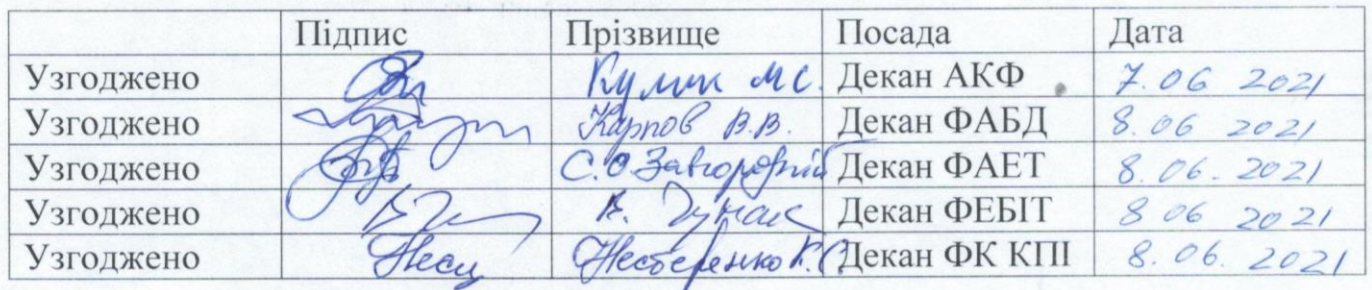 Підпис Прізвище Посада Дата
Узгоджено Кулик М.С. Декан АКФ 7.06 2021
Узгоджено Карпов В.В. Декан ФАБД 8.06 2021
Узгоджено С.О. Завгородній Декан ФАЕТ 8.06.2021
Узгоджено Декан ФЕБІТ 8 06 2021
Узгоджено Нестеренко К.С. Декан ФК КПІ 8.06.2021